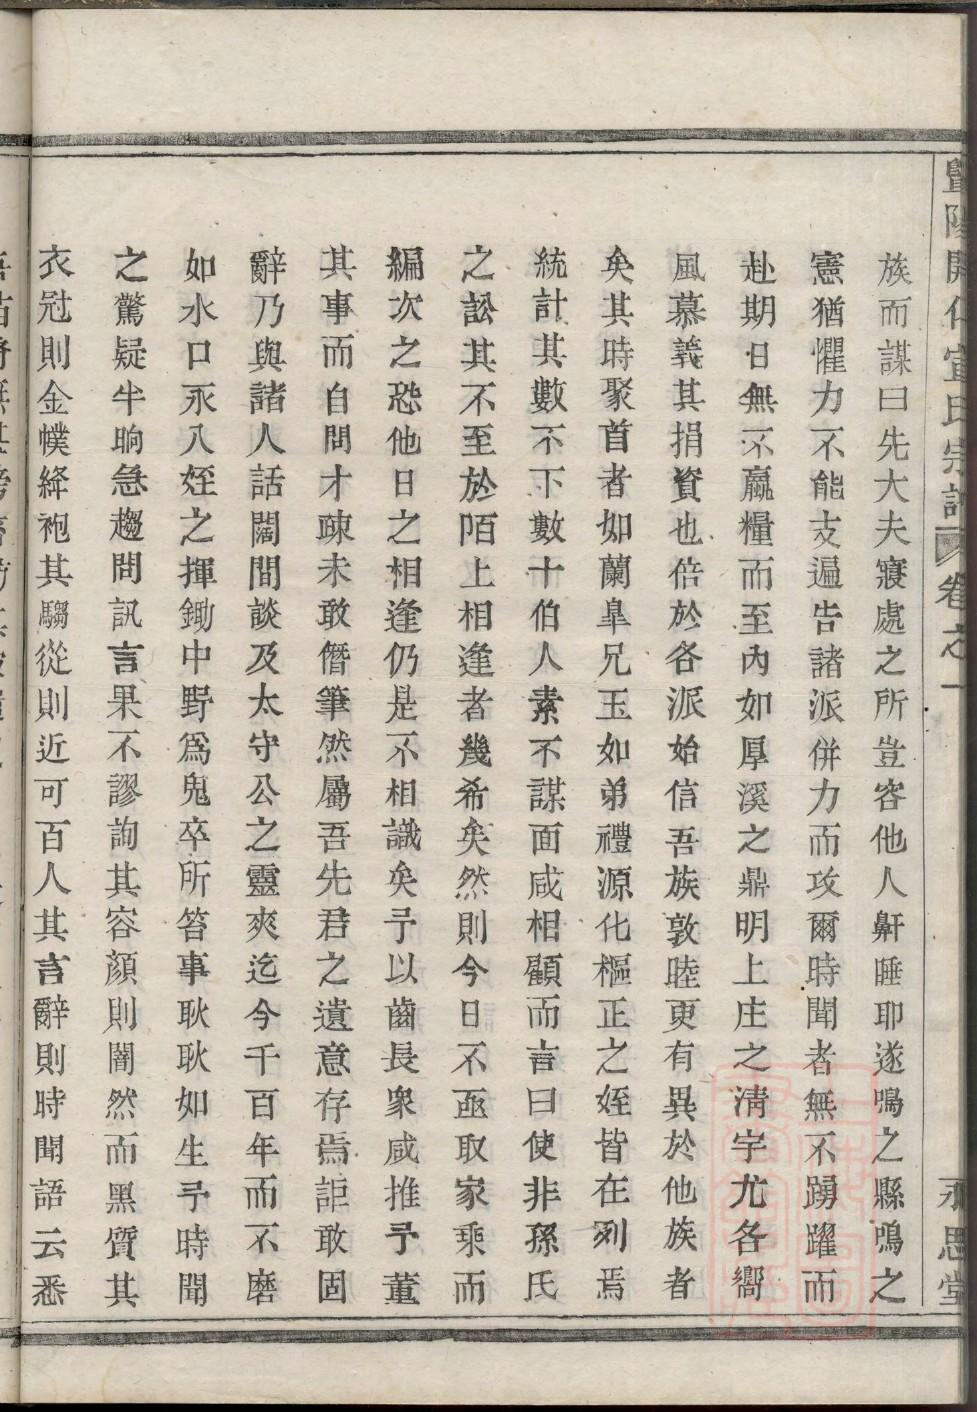 暨陽開化宣氏宗譜 卷之一 永思堂
族而謀曰先大夫寢處之所豈容他人鼾睡耶遂鳴之縣鳴之
憲猶懼力不能支遍告諸派併力而攻爾時聞者無不踴躍而
赴期日無不贏糧而至內如厚溪之鼎明上庄之清宇尤各嚮
風慕義其捐資也倍於各派始信吾族敦睦更有異於他族者
矣其時聚首者如蘭皐兄玉如弟禮源化樞正之姪皆在列焉
統計其數不下數十伯人素不謀面咸相顧而言曰使非孫氏
之訟其不至於陌上相逢者幾希矣然則今日不亟取家乘而
編次之恐他日之相逢仍是不相識矣予以齒長衆咸推予董
其事而自問才疎未敢僭筆然屬吾先君之遺意存焉詎敢固
辭乃與諸人話闊間談及太守公之靈爽迄今千百年而不磨
如水口永八姪之揮鋤中野爲鬼卒所笞事耿耿如生予時聞
之驚疑半晌急趨問訊言果不謬詢其容顏則闇然而黑質其
衣冠則金幞絳袍其騶從則近可百人其言辭則時聞語云悉